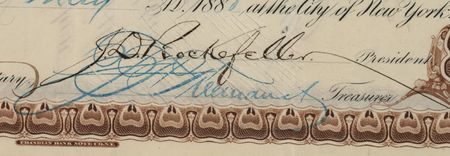 May A.D. 188 at the City of New York.
J.D. Rockefeller President
tary. Treasurer
FRANKLIN BANK NOTE CO. N.Y.